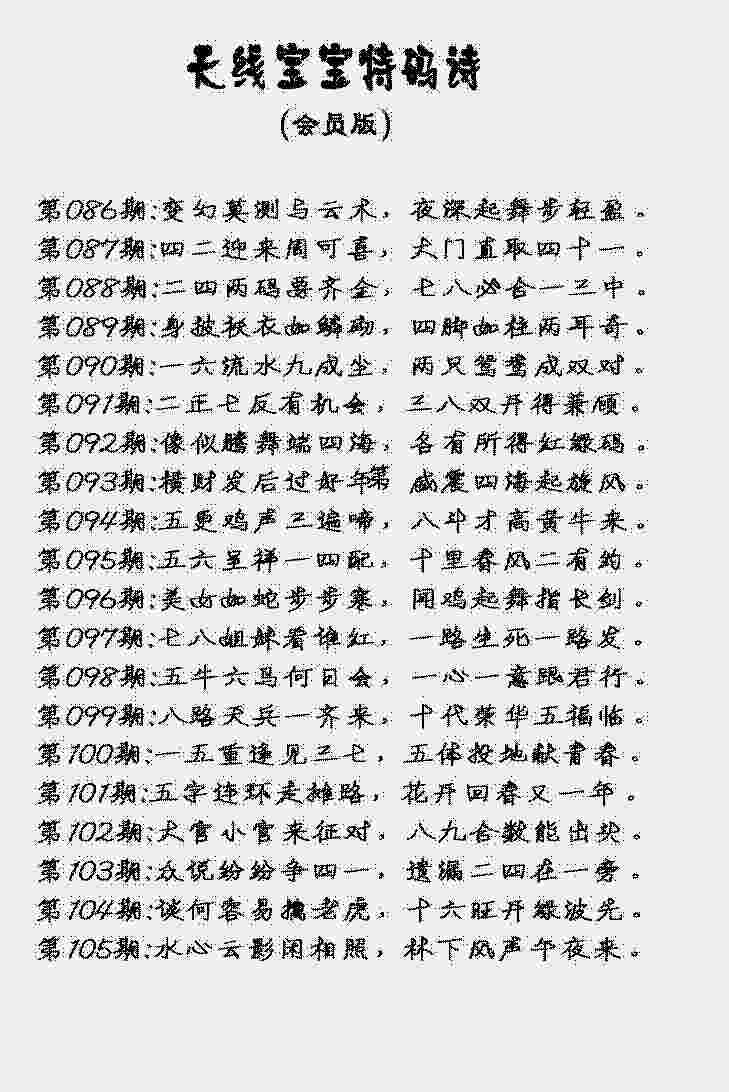 天线宝宝特码诗
(会员版)
第086期:变幻莫测与云术，夜深起舞步轻盈。
第087期:四二迎来周可喜，大门直取四十一。
第088期:二四两码要齐全，七八必合一三中。
第089期:身披袄衣如鳞砌，四脚如柱两耳奇。
第090期:一六流水九成尘，两只鸳鸯成双对。
第091期:二正七反有机会，三八双开得兼顾。
第092期:像似腾舞端四海，各有所得红绿码。
第093期:横财发后过好年第 威震四海起旋风。
第094期:五更鸡声三遍啼，八斗才高黄牛来。
第095期:五六呈祥一四配，十里春风二有约。
第096期:美女如蛇步步寒，闻鸡起舞指长剑。
第097期:七八姐妹看谁红，一路生死一路发。
第098期:五牛六马何日会，一心一意跟君行。
第099期:八路天兵一齐来，十代荣华五福临。
第100期:一五重逢见三七，五体投地献青春。
第101期:五字连环走摊路，花开回春又一年。
第102期:大官小官来征对，八九合数能出块。
第103期:众说纷纷争四一，遗漏二四在一旁。
第104期:谈何容易擒老虎，十六旺开绿波先。
第105期:水心云影闲相照，林下风声午夜来。